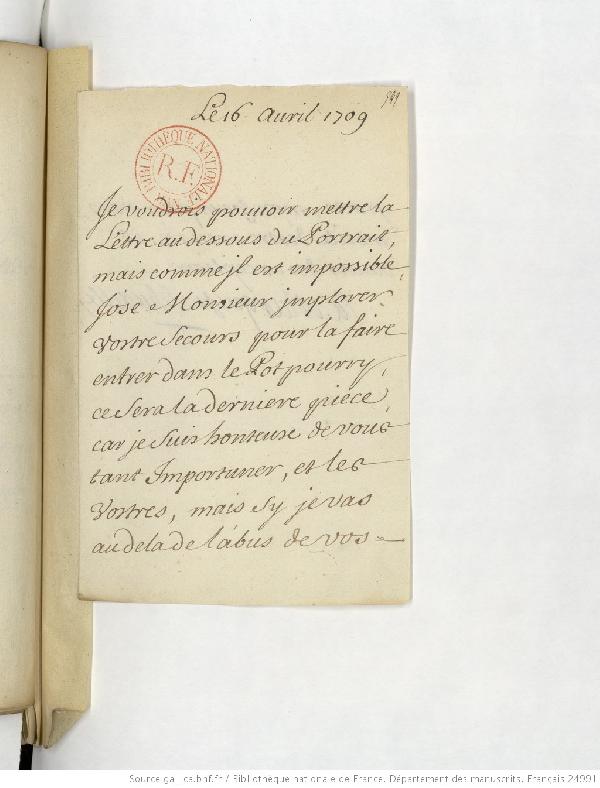 Le 16 auril 1709
BIBLIOTHEQUE NATIONALE
R.F.
Je voudrois pouuoir mettre la
Lettre au dessous du Portrait,
mais comme jl est impossible,
J'ose Monsieur jmplorer
Vostre Secours pour la faire
entrer dans le Pot pourry,
ce Sera la derniere piece,
car je Suis honteuse de vous
tant Importuner, et les
Vostres, mais Sy je vas
au dela de l'abus de vos =
Source gallica.bnf.fr / Bibliothèque nationale de France. Département des manuscrits. Français 24991